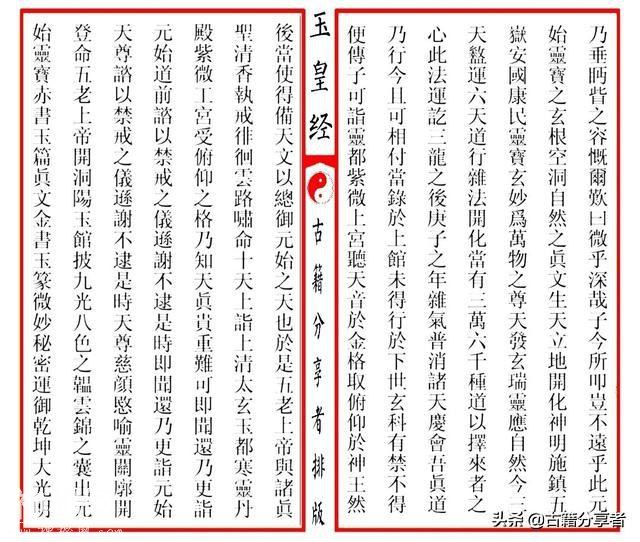 乃垂眄眥之容慨爾歎曰微乎深哉子今所叩豈不遠乎此元
始靈寶之玄根空洞自然之眞文生天立地開化神明施鎮五
嶽安國康民靈寶玄妙爲萬物之尊天發玄瑞靈應自然今三
天盤運六天道行雜法開化當有三萬六千種道以擇來者之
心此法運訖三龍之後庚子之年雜氣普消諸天慶會吾眞道
乃行今且可相付當錄於上館未得行於下世玄科有禁不得
便傳子可詣靈都紫微上宮聽天音於金格取俯仰於神王然
玉皇经
古籍分享者排版
後當使得備天文以總御元始之天也於是五老上帝與諸眞
聖清香執戒徘徊雲路嘯命十天上詣上清太玄玉都寒靈丹
殿紫微工宮受俯仰之格乃知天眞貴重難可即聞還乃更詣
元始道前諮以禁戒之儀遜謝不逮是時即聞還乃更詣元始
天尊諮以禁戒之儀遜謝不逮是時天尊慈顔愍喻靈關廓開
登命五老上帝開洞陽玉館披九光八色之韞雲錦之囊出元
始靈寶赤書玉篇眞文金書玉篆微妙秘密運御乾坤大光明
头条 @古籍分享者